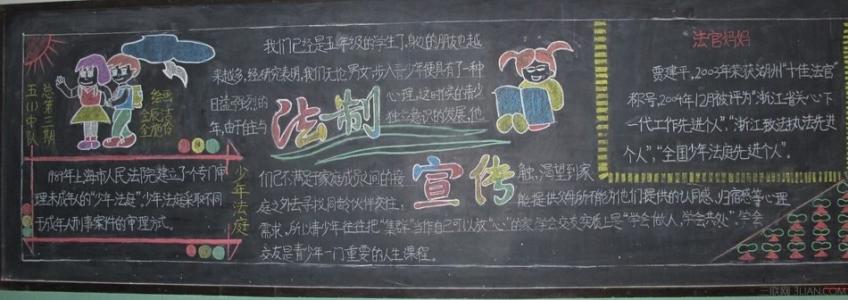 五(1)中队
总第三期
我们已经是五年级的学生了,身边的朋友也越
来越多,经研究表明,我们无论男女,步入青少年便具有了一种
日益强烈的
心理,这时候的青少
年,由于住与
独立意识的发展,他
法制
宣传
们已不满足于家庭成员间的接
触,渴望到家
庭之外去寻找同龄伙伴交往,
能提供父母所不能为他们提供的认同感、归宿感等心理
需求,所以青少年往往把“集群”当作自己可以放“心”的家,学会交友实质上是“学会做人,学会共处”,学会
交友是青少年一门重要的人生课程。
少年法庭
1984年上海市人民法院建立了个专门审
理未成年人的“少年法庭”,少年法庭采取不同
于成年人刑事案件的审理方式。
法官妈妈
贾建平,2003年荣获湖州“十佳法官”
称号,2004年12月被评为“浙江省关心下
一代工作先进个人”,“浙江政法执法先进
个人”,“全国少年法庭先进个人”。
一联网 3LIAN.COM